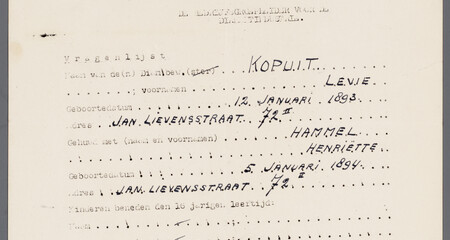 Vragenlijst
Naam van de(n) Dienbew.(ster) . . KOPUIT . . . .
. . . . . ; voornamen . . . . . LEVIE .
Geboortedatum . . . . 12. JANUARI. 1893
Adres . JAN. LIEVENSSTRAAT. 72 II . . . .
Gehuwd met (naam en voornamen) . . HAMMEL
. . . . . . . . . HENRIËTTE . .
Geboortedatum . . . . 5. JANUARI. 1894.
Adres . JAN. LIEVENSSTRAAT. 72 II . . . .
Kinderen beneden den 16 jarigen leeftijd:
Naam . . . . . . . . . .